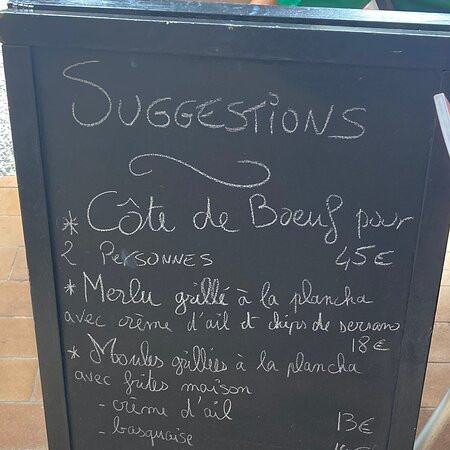 SUGGESTIONS
* Côte de Boeuf pour
2 PERSONNES 45€
* Merlu grillé à la plancha
avec crème d'ail et chips de serrano
18€
* Moules grillées à la plancha
avec frites maison
- crème d'ail 13€
- basquaise